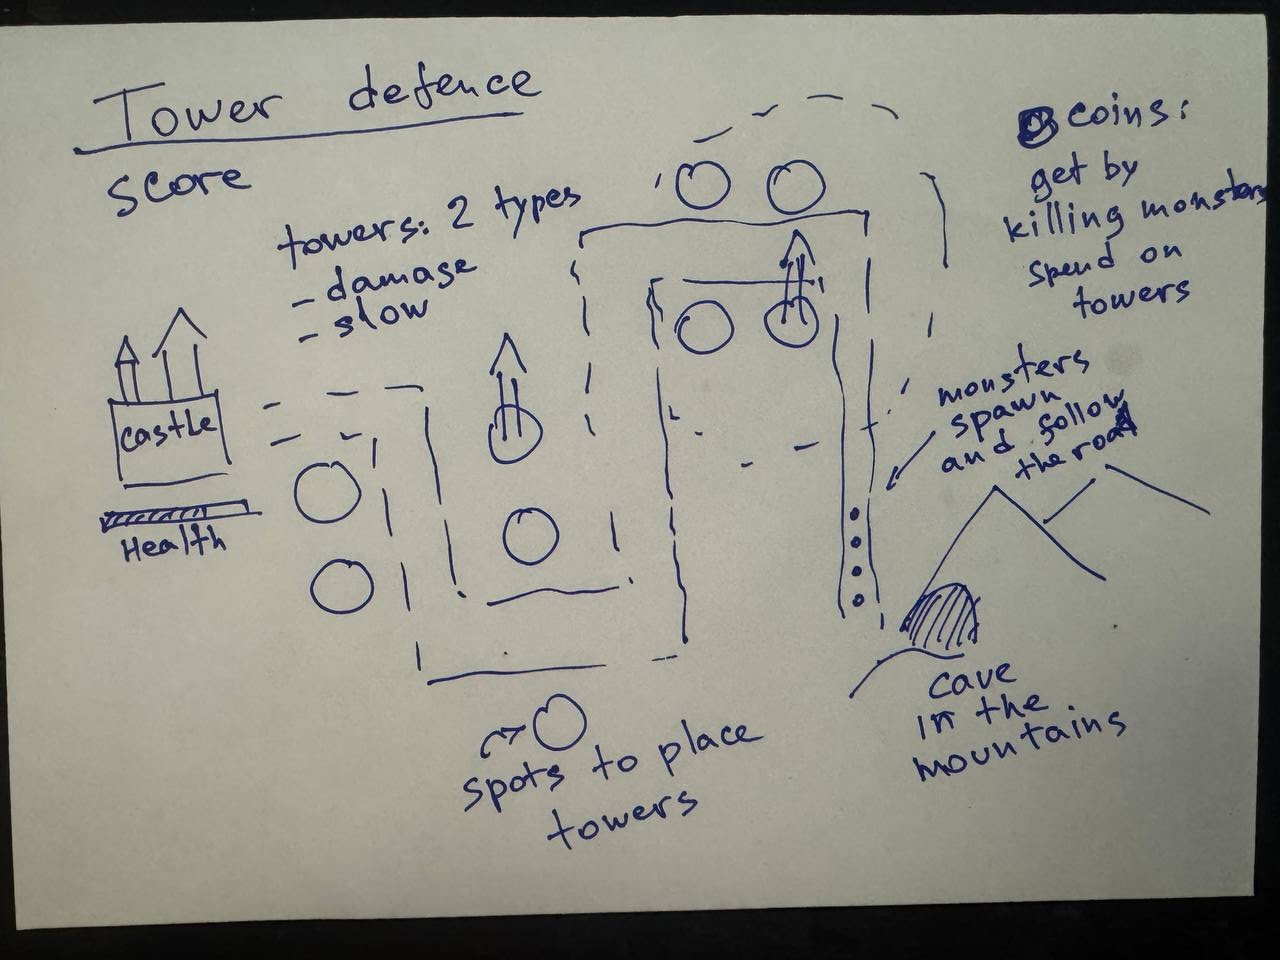 Tower defence
score
towers: 2 types
- damage
- slow
castle
Health
coins:
get by
killing monsters
spend on
towers
monsters
spawn
and follow
the road
cave
in the
mountains
spots to place
towers